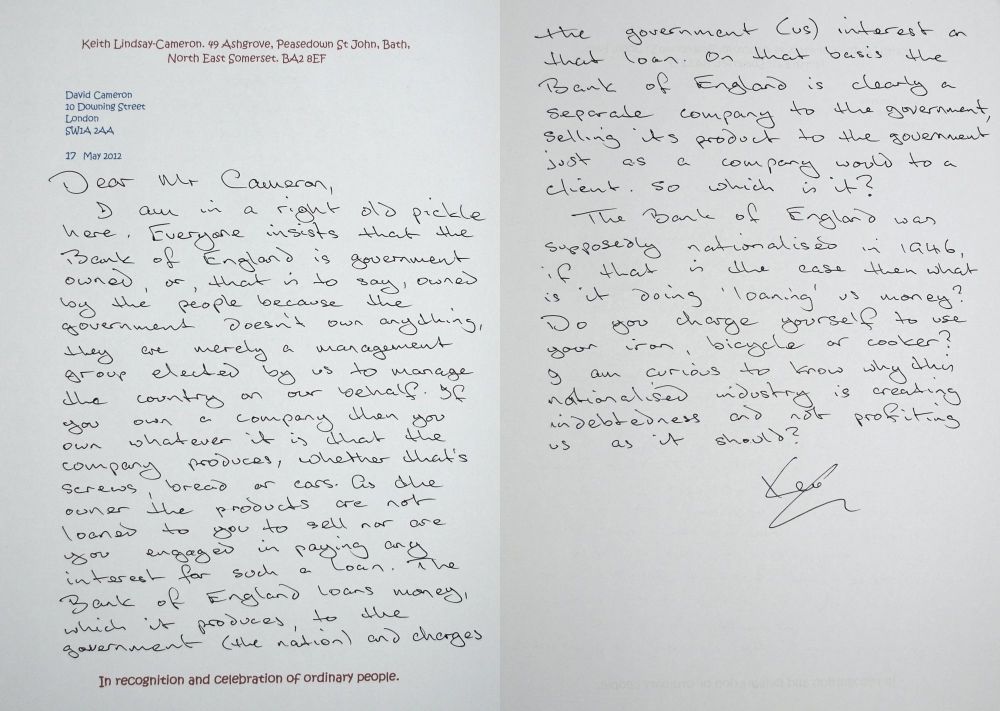 Keith Lindsay-Cameron. 49 Ashgrove, Peasedown St John, Bath,
North East Somerset. BA2 8EF
David Cameron
10 Downing Street
London
SW1A 2AA
17 May 2012
Dear Mr Cameron,
I am in a right old pickle
here. Everyone insists that the
Bank of England is government
owned, or, that is to say, owned
by the people because the
government doesn't own anything,
they are merely a management
group elected by us to manage
the country on our behalf. If
you own a company then you
own whatever it is that the
company produces, whether that's
screws, bread or cars. As the
owner the products are not
loaned to you to sell nor are
you engaged in paying any
interest for such a loan. The
Bank of England loans money,
which it produces, to the
government (the nation) and charges
In recognition and celebration of ordinary people.
the government (us) interest on
that loan. On that basis the
Bank of England is clearly a
separate company to the government,
selling its product to the government
just as a company would to a
client. So which is it?
The Bank of England was
supposedly nationalised in 1946,
if that is the case then what
is it doing 'loaning' us money?
Do you charge yourself to use
your iron, bicycle or cooker?
I am curious to know why this
nationalised industry is creating
indebtedness and not profiting
us as it should?